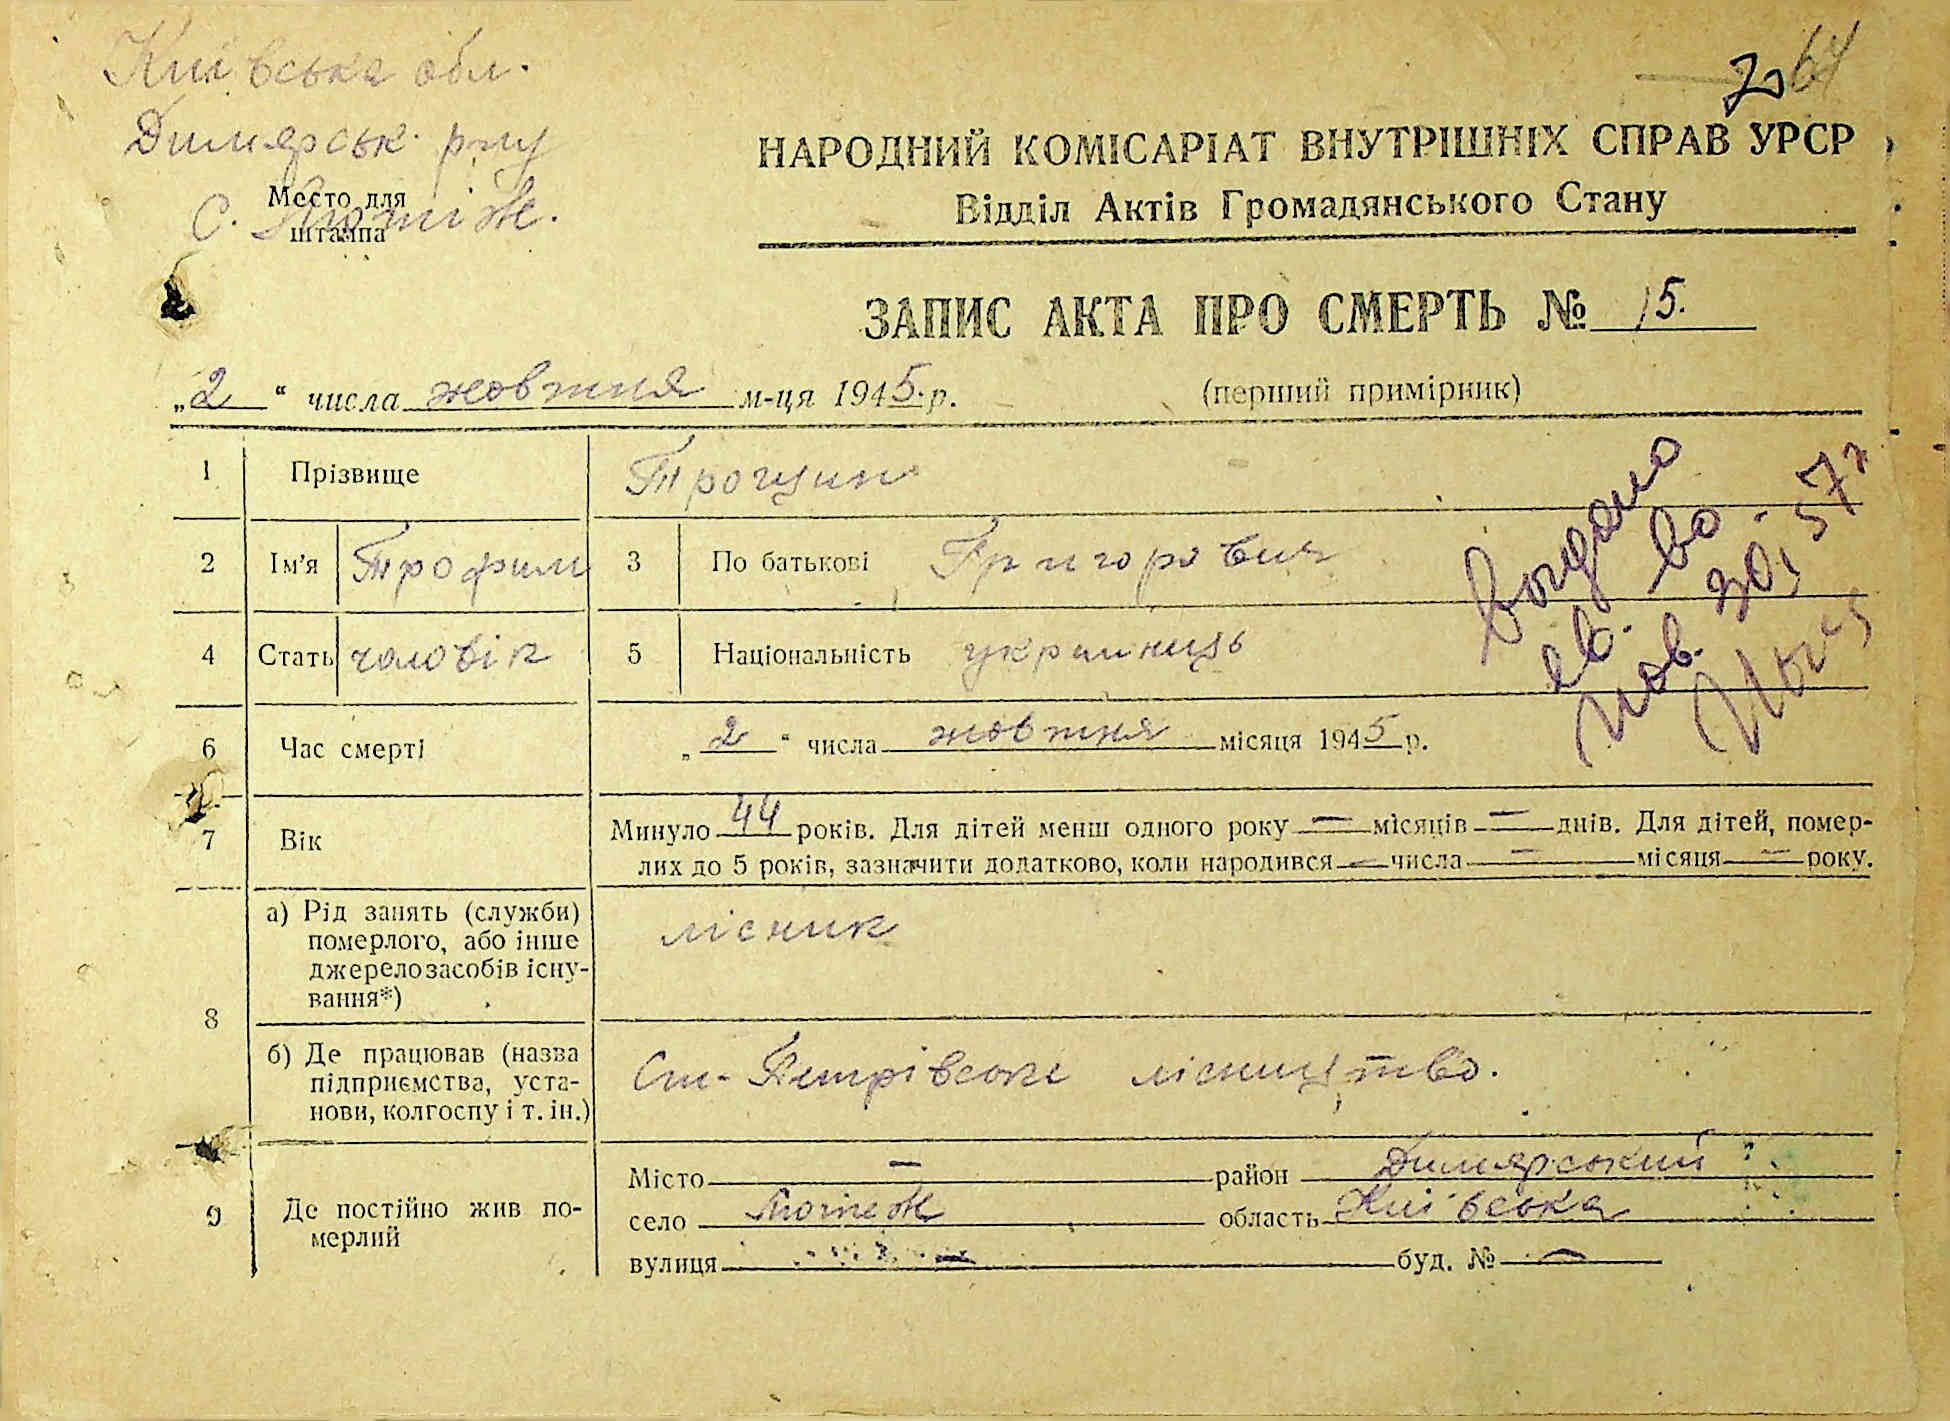 Київська обл.
Димярськ. р-ну
Место для
штампа
с. Лютіж.
7064
НАРОДНИЙ КОМІСАРІАТ ВНУТРІШНІХ СПРАВ УРСР
Відділ Актів Громадянського Стану
ЗАПИС АКТА ПРО СМЕРТЬ № 15.
„2“ числа жовтня м-ця 1945.р.
(перший примірник)
1 Прізвище Трощин
2 Ім'я Трофим 3 По батькові Григорович
4 Стать чоловік 5 Національність українець
6 Час смерті „2“ числа жовтня місяця 1945 р.
7 Вік Минуло 44 років. Для дітей менш одного року — місяців — днів. Для дітей, помер-
лих до 5 років, зазначити додатково, коли народився — числа — місяця — року.
8 а) Рід занять (служби)
померлого, або інше
джерело засобів існу-
вання*)
лісник
б) Де працював (назва
підприємства, уста-
нови, колгоспу і т. ін.)
Ст-Петрівське лісництво.
9 Де постійно жив по-
мерлий
Місто — район Димярський
село Лютеж область Київська
вулиця — буд. № —